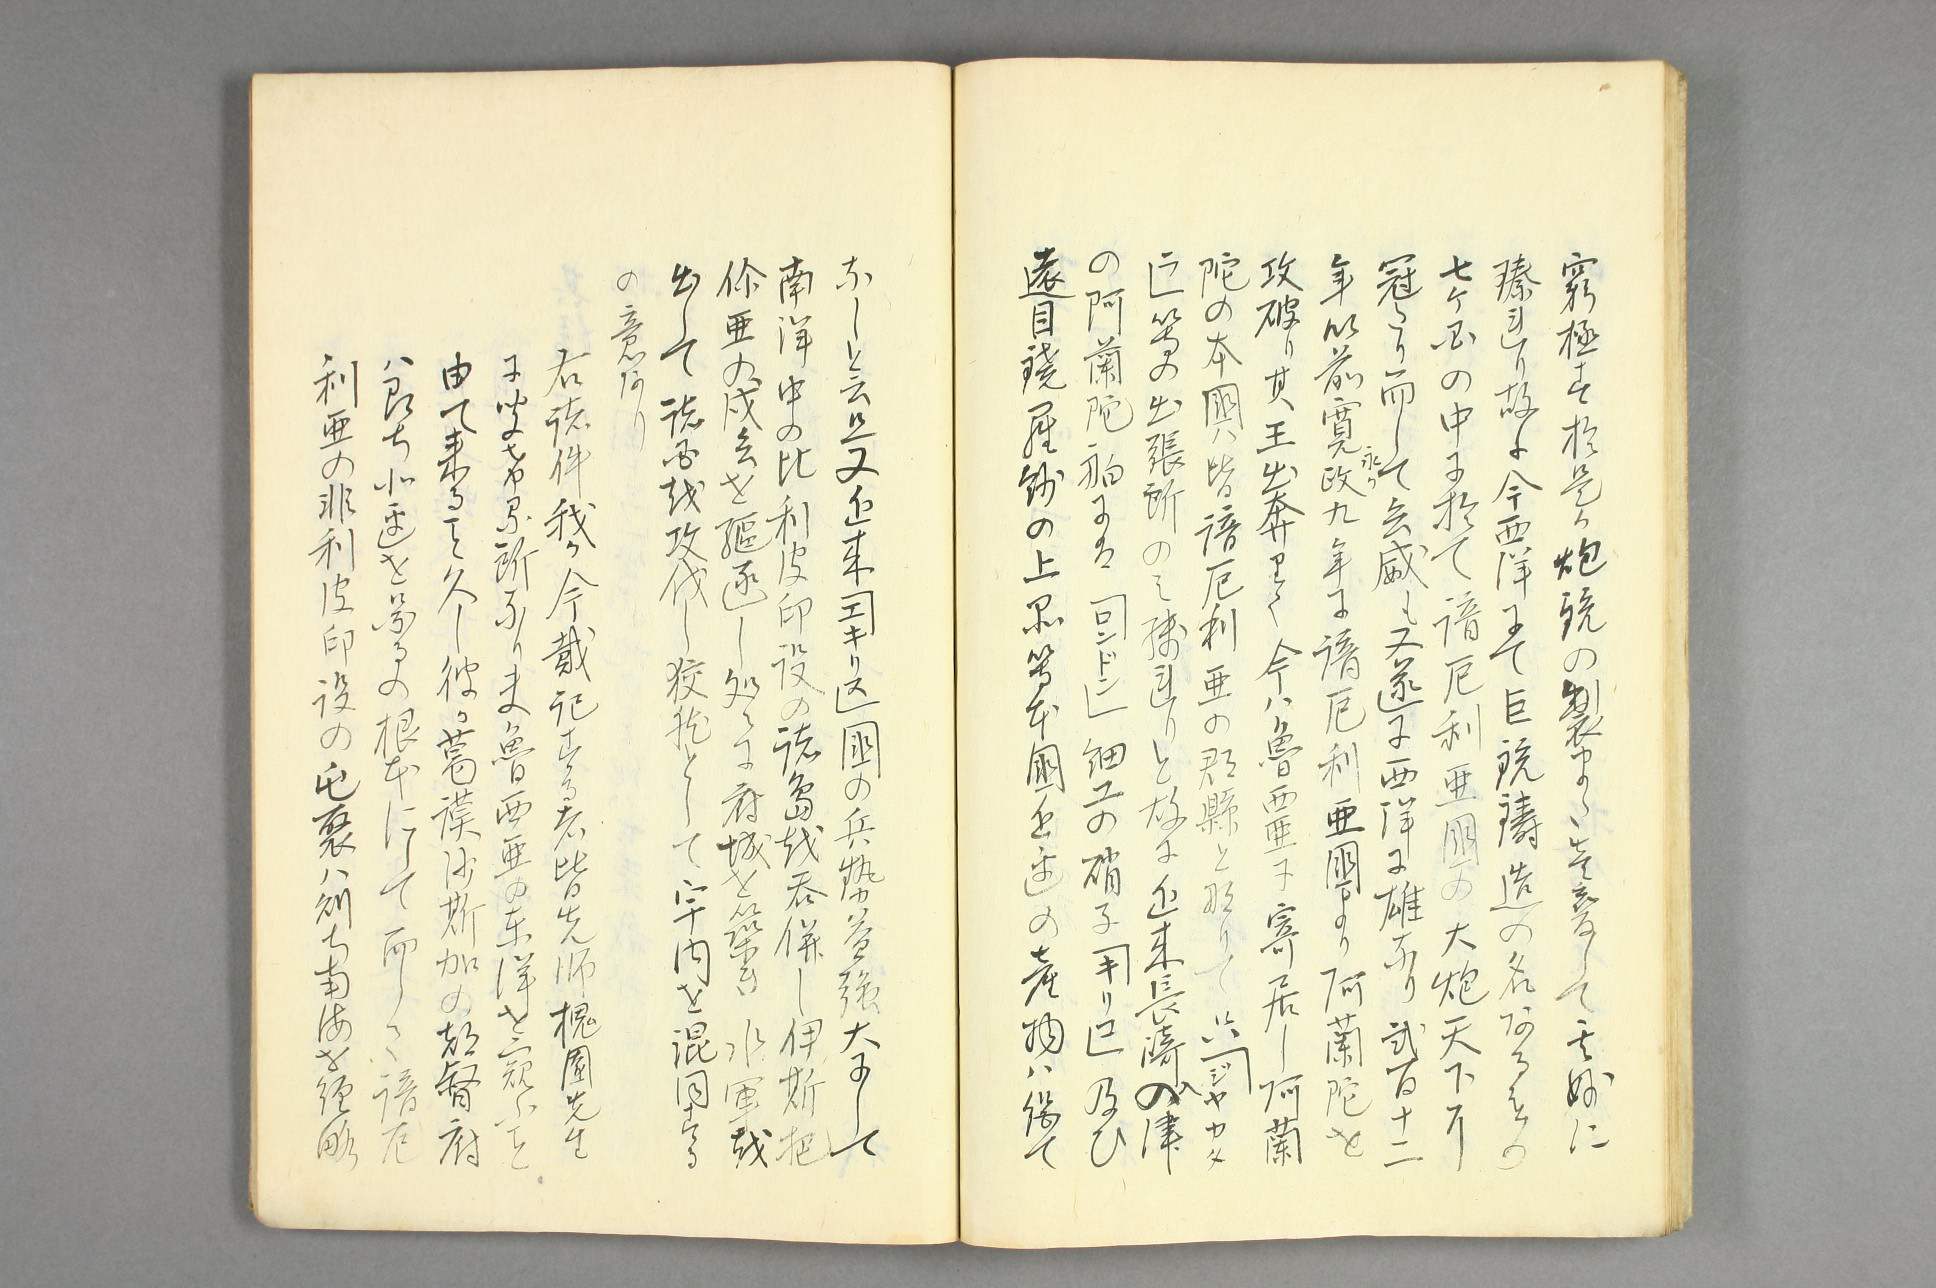 窮極す於是か炮銃の製ます〳〵意変して其妙に
臻れり故に今西洋にて巨銃鋳造の名あるもの
七ケ国の中に於て諳厄利亜国の大炮天下に
冠たり而して兵威も又遂に西洋に雄なり弐百十二
年以前寛永か政九年に諳厄利亜国より阿蘭陀を
攻破り其王出奔して今ハ魯西亜に寄居し阿蘭
陀の本国ハ皆諳厄利亜の郡縣と成りて只「ジヤカタ
ラ」等の出張所のミ残れりと故に近来長崎へ入津
の阿蘭陀船にハ「ロンドン」細工の硝子「キリコ」及ひ
遠目鏡羅紗の上品等本国近辺の産物ハ絶て
なしと云且又近来「エキリス」国の兵勢益強大にして
南洋中の比利皮印設の諸島越呑併し伊斯把
你亜の戍兵を驅逐し処々に府城を築き水軍越
出して諸国越攻伐し狡猾として宇内を混同する
の意あり
右諸件我か今戴記する者皆先師槐園先生
に受る所なり夫魯西亜の東洋を窺ふこと
由て来ること久し彼か葛謨沙斯加の都督府
ハ即ち北辺を禦るの根本にして而して諳厄
利亜の非利皮印設の屯聚ハ則ち南海を経略